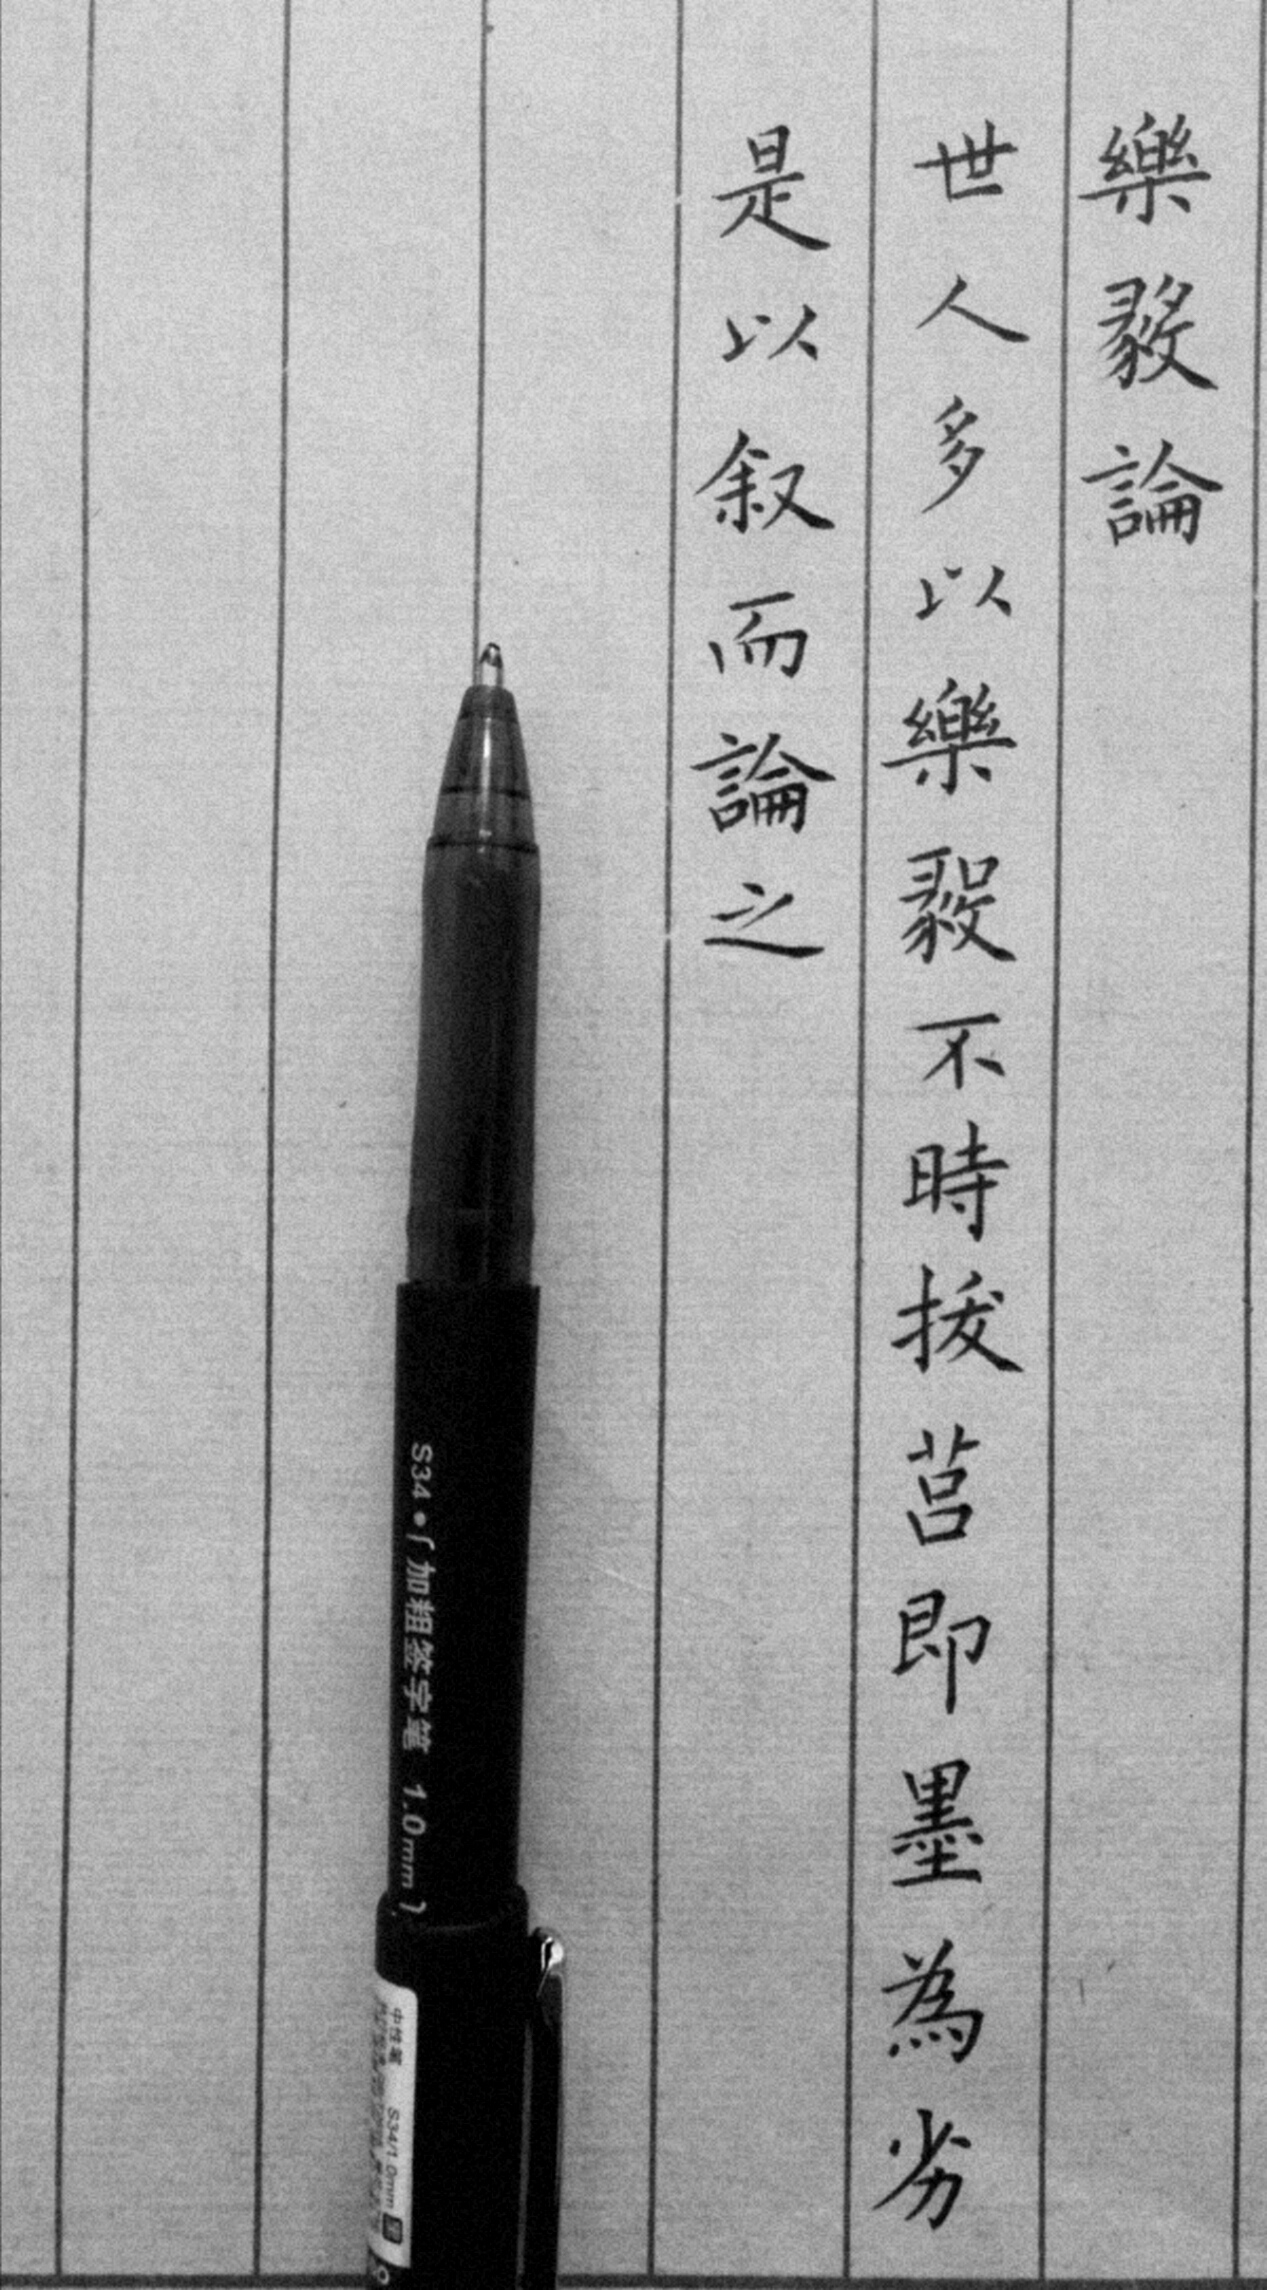 樂毅論
世人多以樂毅不時拔莒即墨為劣
是以叙而論之
S34•「加粗签字笔 1.0mm」
中性笔 S34/1.0mm